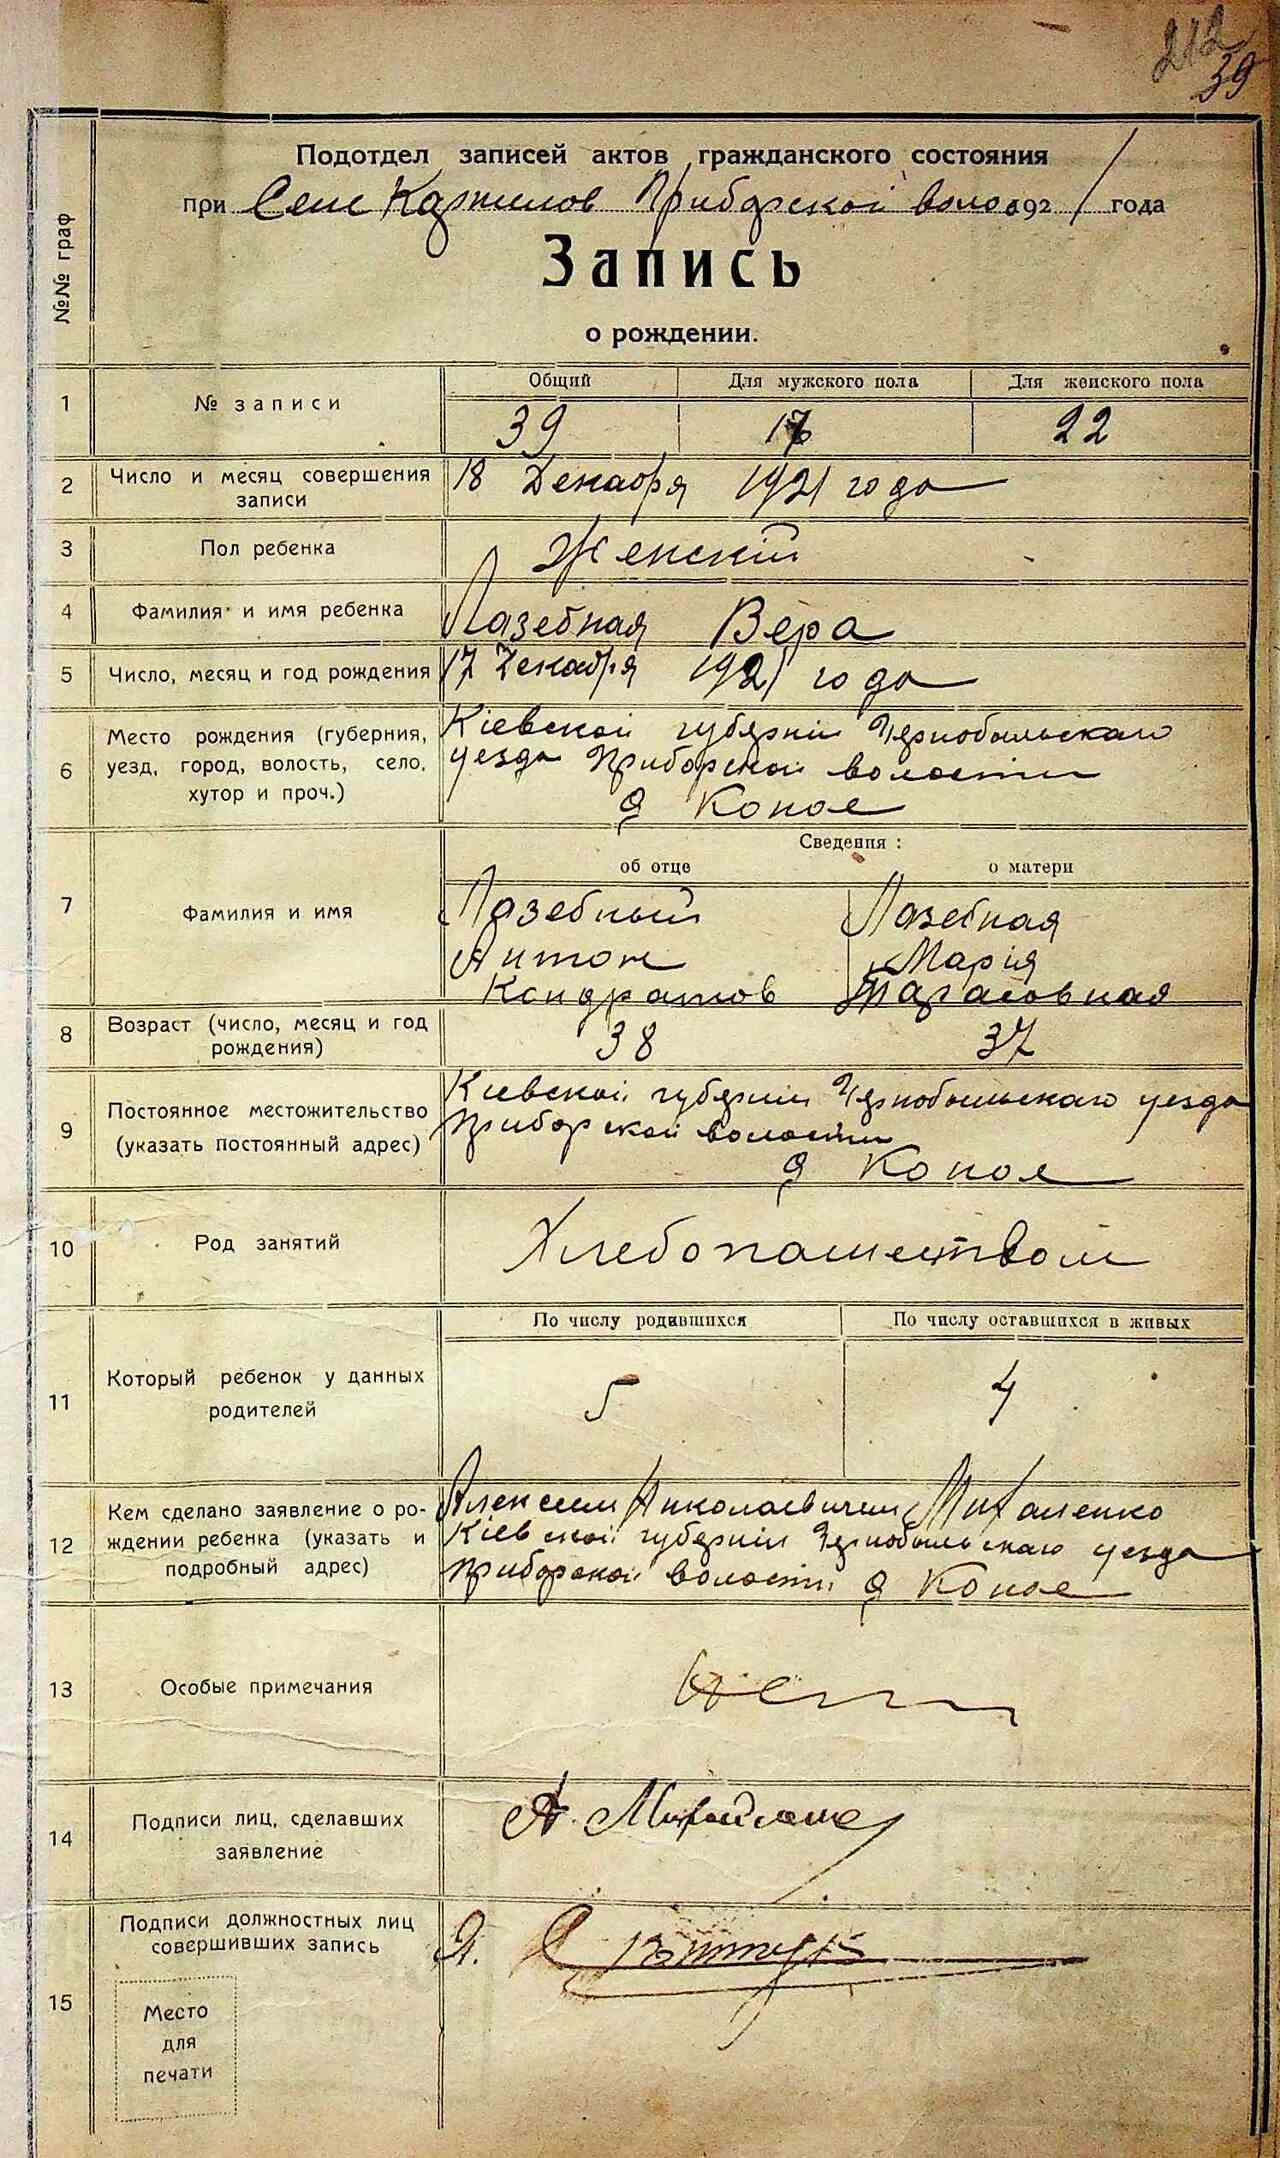 212
39
Подотдел записей актов гражданского состояния
при Селе Карпилов Приборской воло 192 1 года
Запись
о рождении.
№№ граф
1 № записи
Общий Для мужского пола Для женского пола
39 17 22
2 Число и месяц совершения записи
18 Декабря 1921 года
3 Пол ребенка
Женскій
4 Фамилия и имя ребенка
Лазебная Вера
5 Число, месяц и год рождения
17 Декабря 1921 года
6 Место рождения (губерния,
уезд, город, волость, село,
хутор и проч.)
Кіевской губерніи Чернобыльскаго
уезда Приборской волости
д Копое
Сведения :
об отце о матери
7 Фамилия и имя
Лазебный Лазебная
Антон Марія
Кондратов Тарасовная
8 Возраст (число, месяц и год
рождения)
38 37
9 Постоянное местожительство
(указать постоянный адрес)
Кіевской губерніи Чернобыльскаго уезда
Приборской волости
д Копое
10 Род занятий
Хлебопашеством
11 Который ребенок у данных
родителей
По числу родившихся По числу оставшихся в живых
5 4
12 Кем сделано заявление о ро-
ждении ребенка (указать и
подробный адрес)
Алексеем Николаевичем Михаленко
Кіевской губерніи Чернобыльскаго уезда
Приборской волости д Копое
13 Особые примечания
Нет
14 Подписи лиц, сделавших
заявление
А.
15 Подписи должностных лиц
совершивших запись
Место
для
печати